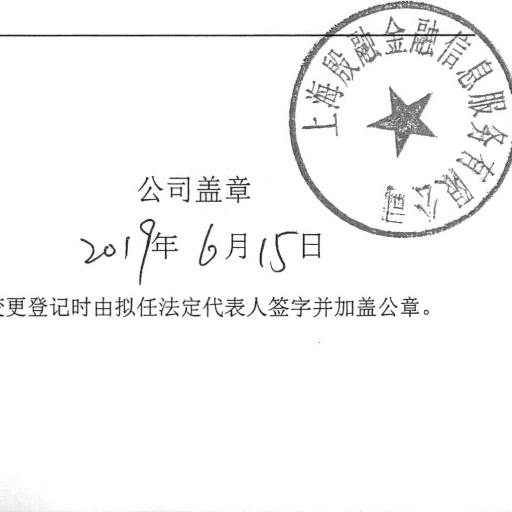 上海殷融金融信息服务有限公司
公司盖章
2019年 6月15日
变更登记时由拟任法定代表人签字并加盖公章。